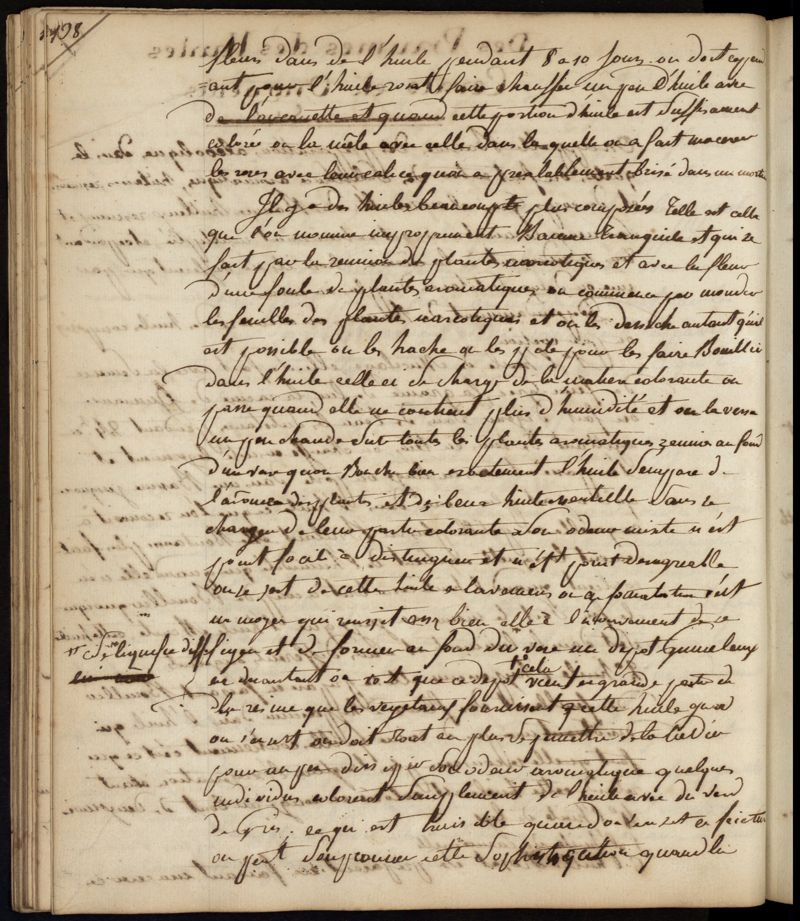 198
fleurs dans de l'huile pendant 8 a 10 jours on doit cepen
ant pour l'huile rosat faire chauffer un peu d'huile avec
de l'orcanette et quand cette portion d'huile est suffisament
colorée on la mêle avec celle dans la quelle on a fait macerer
les roses avec leur calice quon a prealablement brisé dans un mortier
Il y a des huiles beaucoup plus composées telle est celle
que l'on nomme improprement Baume tranquile et qui se
fait par la reunion des plantes narcotiques et avec la fleur
d'une foule de plantes aromatiques on commence par monder
les feuilles des plantes narcotiques et on les desseche autant qu'il
est possible on les hache et les pile pour les faire Bouillir
dans l'huile celle ci se charge de la matiere colorante on
passe quand elle ne contient plus d'humidité et on la verse
un peu chaude sur toutes les plantes aromatiques reunies au fond
d'un vase quon Bouche bien exactement l'huile s'empare de
l'arome des plantes et de leur huile essentielle sans se
charger de leur partie colorante son odeur mixte n'est
point facile a distinguer et n'est point desagreable
on se sert de cette huile en lavemens ou en fomentation c'est
un moyen qui reussit assez bien elle a l'inconvenient de se
figer et de former au fond du vase un depot grumeleux
se liquefie
en decantant on voit que ce depot vient en grande partie de
cela
la resine que les vegetaux fournissent a cette huile quand
on s'en sert on doit tout au plus permettre de la tiedir
pour ne pas dissiper son odeur aromatique quelques
individus colorent simplement de l'huile avec du verd
de Gris ce qui est nuisible quand on s'en sert en friction
on peut s'appercevoir cette Sophistication quand la